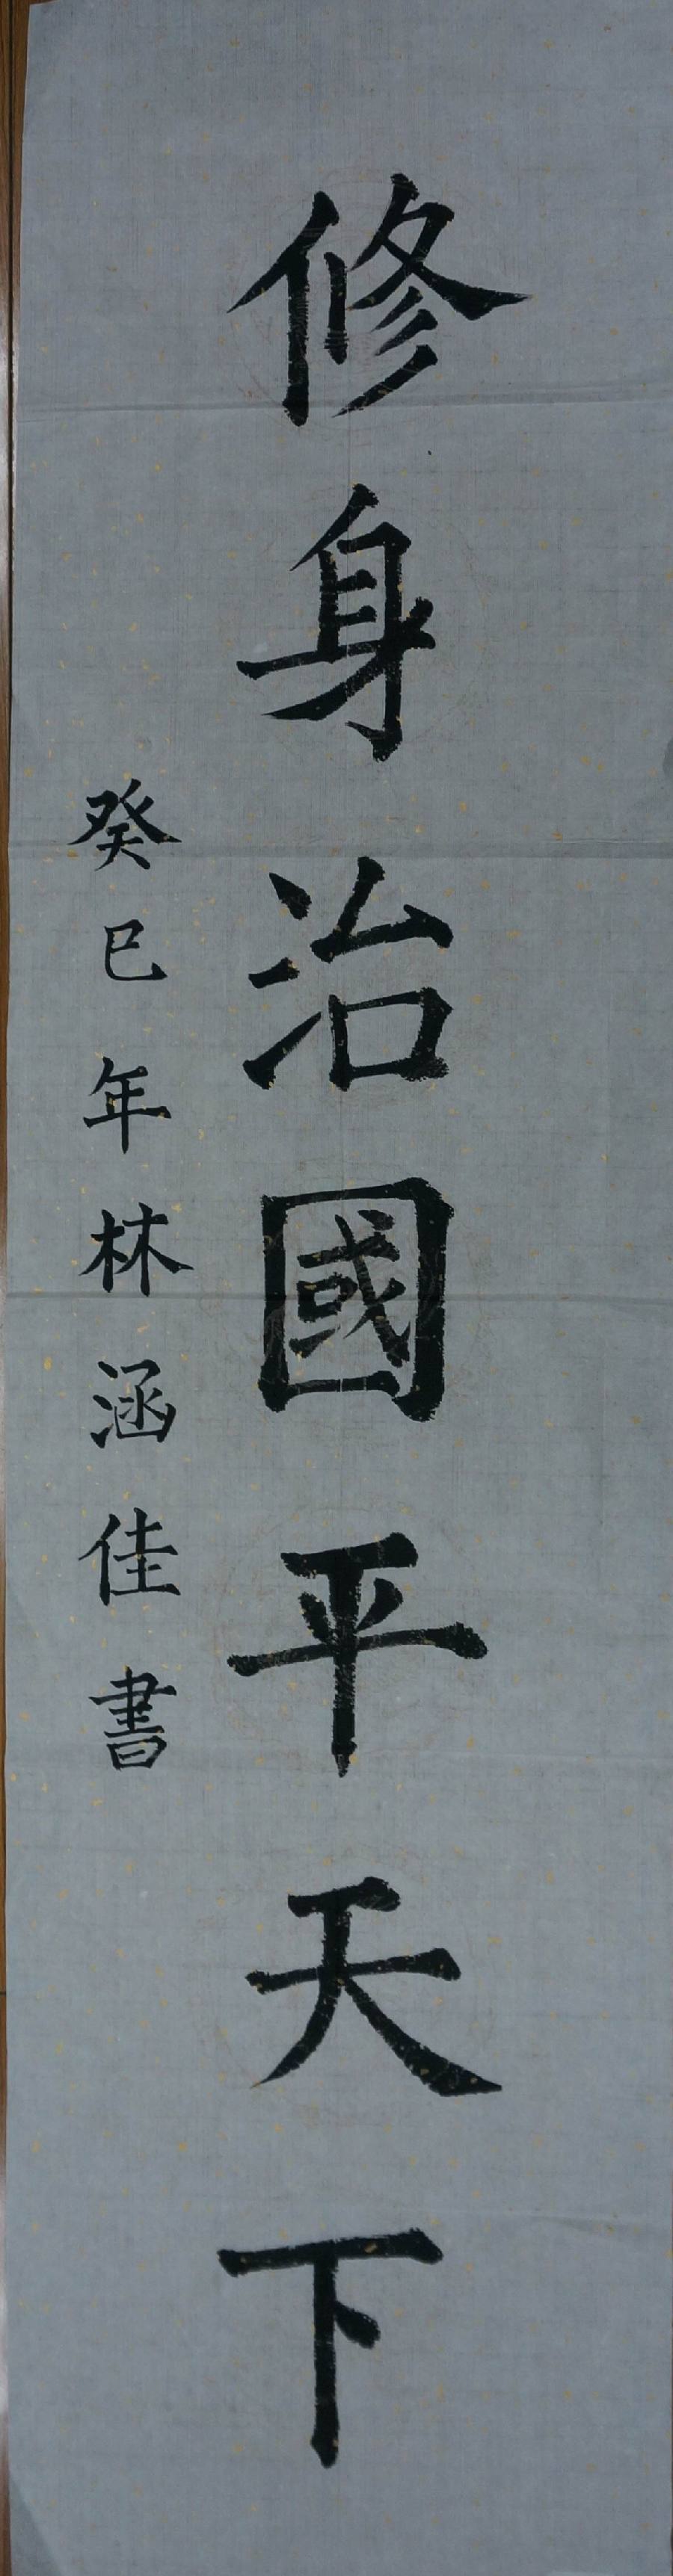 修身治國平天下
癸巳年林涵佳書